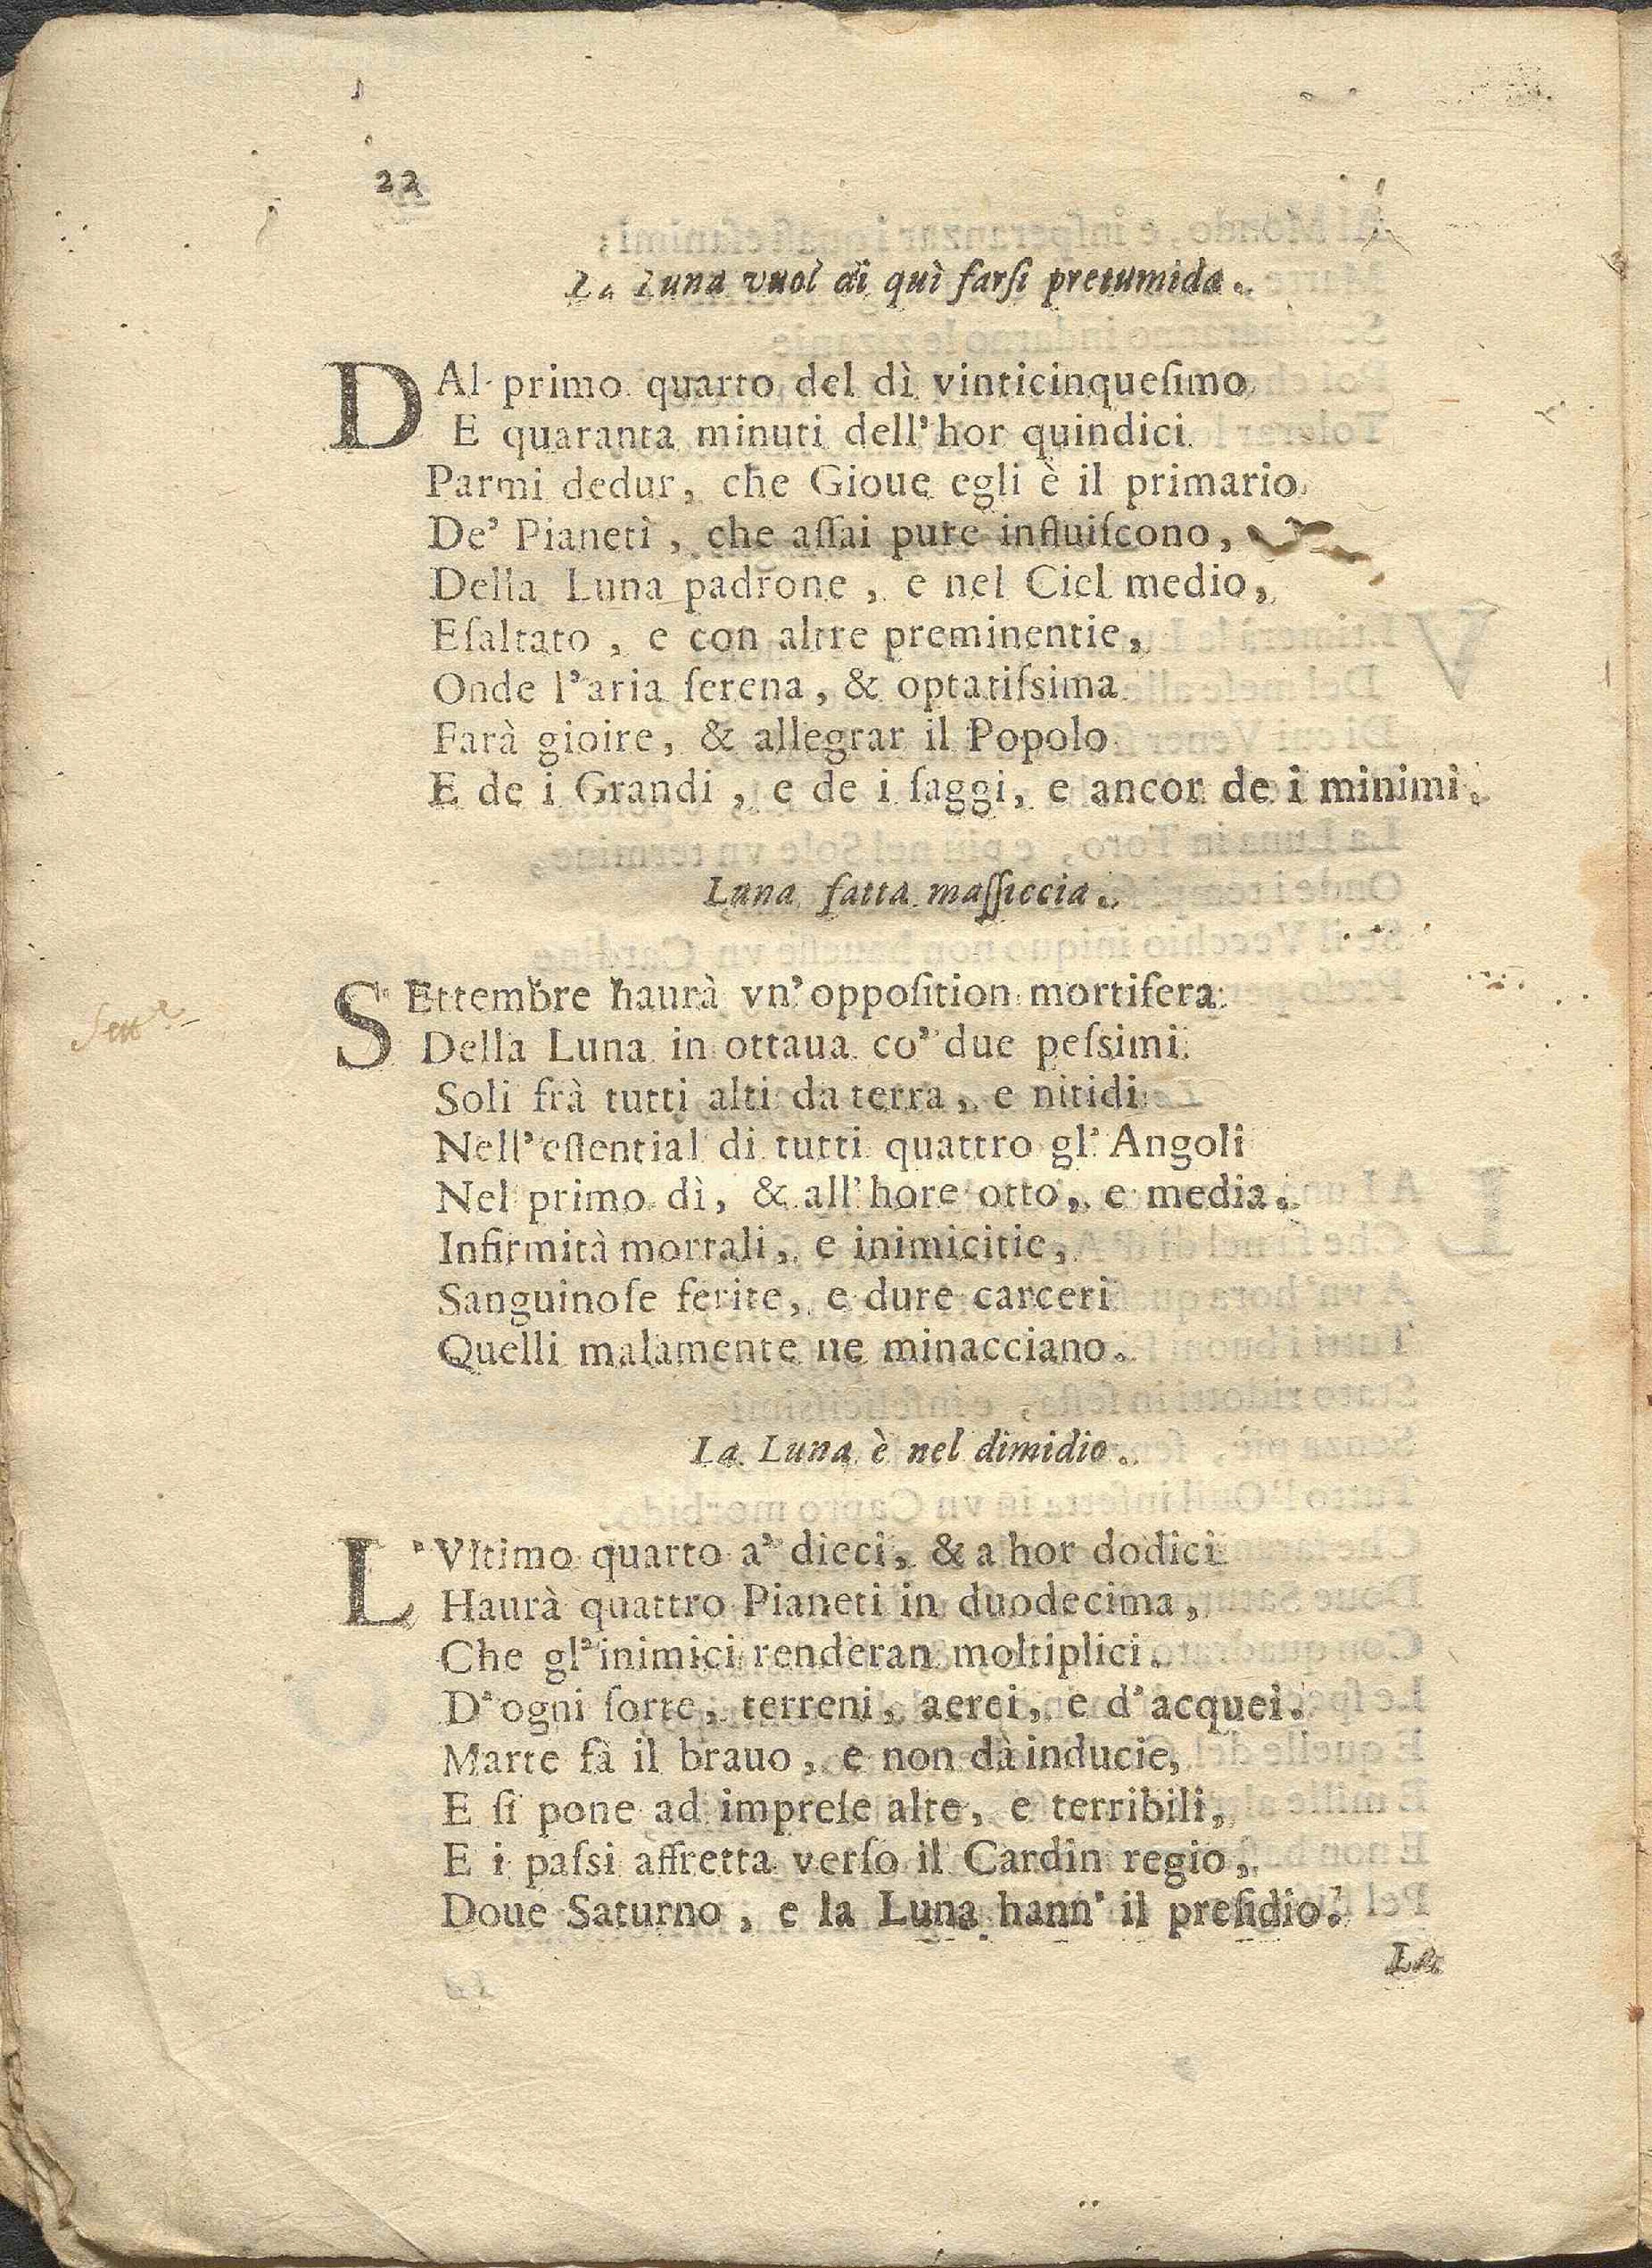 22
La Luna vuol di quì farſi pretumida.
DAl primo quarto del dì vinticinqueſimo
E quaranta minuti dell'hor quindici
Parmi dedur, che Gioue egli è il primario
De' Pianeti, che aſſai pure influiſcono,
Della Luna padrone, e nel Ciel medio,
Eſaltato, e con altre preminentie,
Onde l'aria ſerena, & optatiſsima
Farà gioire, & allegrar il Popolo
E de i Grandi, e de i ſaggi, e ancor de i minimi.
Luna fatta maſſiccia.
SEttembre haurà vn'oppoſition mortifera
Sett.e
Della Luna in ottaua co' due peſsimi
Soli frà tutti alti da terra, e nitidi
Nell'eſſential di tutti quattro gl'Angoli
Nel primo dì, & all'hore otto, e media.
Infirmità mortali, e inimicitie,
Sanguinoſe ferite, e dure carceri
Quelli malamente ne minacciano.
La Luna è nel dimidio.
L'Vltimo quarto a' dieci, & a hor dodici
Haurà quattro Pianeti in duodecima,
Che gl'inimici renderan moltiplici.
D'ogni ſorte, terreni, aerei, e d'acquei.
Marte fà il brauo, e non dà inducie,
E ſi pone ad impreſe alte, e terribili,
E i paſsi affretta verſo il Cardin regio,
Doue Saturno, e la Luna hann' il preſidio.
La